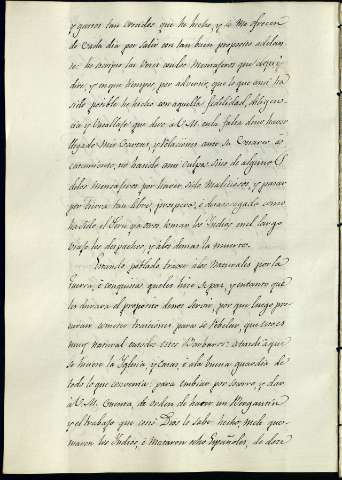 y gastos tan crecidos que he hecho, y se me ofrecen
de cada dia por salir con tan buen proposito adelan-
te: he escripto las veces con los mensageros que aqui
dire, y en que tiempo, por advertir, que lo que a mi ha
sido posible he hecho con aquella fidelidad, diligen-
cia y vasallage que devo a V. M. e la falta de no haver
llegado mis Cartas, y relaciones ante su Cesareo a-
catamiento, no ha sido mia culpa, sino de algunos
de los mensageros por haver sido maliciosos, y pasar
por tierra tan libre, prospera, é desasosegada como
ha sido el Perú ya otros tomar los Indios en el largo
viage los despachos, y á los demas la muerte.
Estando poblado trage á los Naturales por la
guerra, é conquista que les hice de paz, y en tanto que
les durara el proposito de nos servir, por que luego pro-
curan cometer traiciones para se rebelar, que esto es
muy natural en todos estos Barbaros: atendi a que
se hiciese la Iglesia, y Casas, é a la buena guardia de
todo lo que convenia: para embiar por socorro, y dar
á V. M. Cuenta, di orden de hacer un Vergantin
y el trabajo que costó Dios lo sabe: hecho, me le que-
maron los Indios, é mataron ocho Españoles, de doce